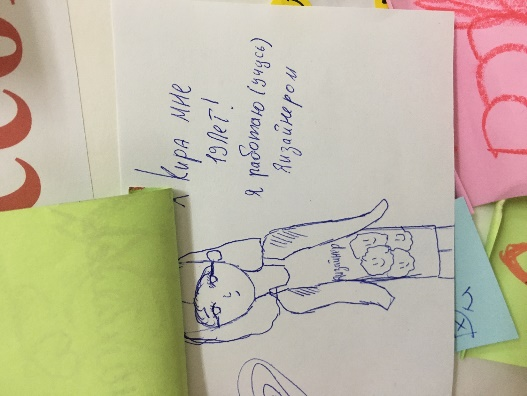 Кира мне
19 лет!
я работаю (учусь)
дизайнером
дизайнер